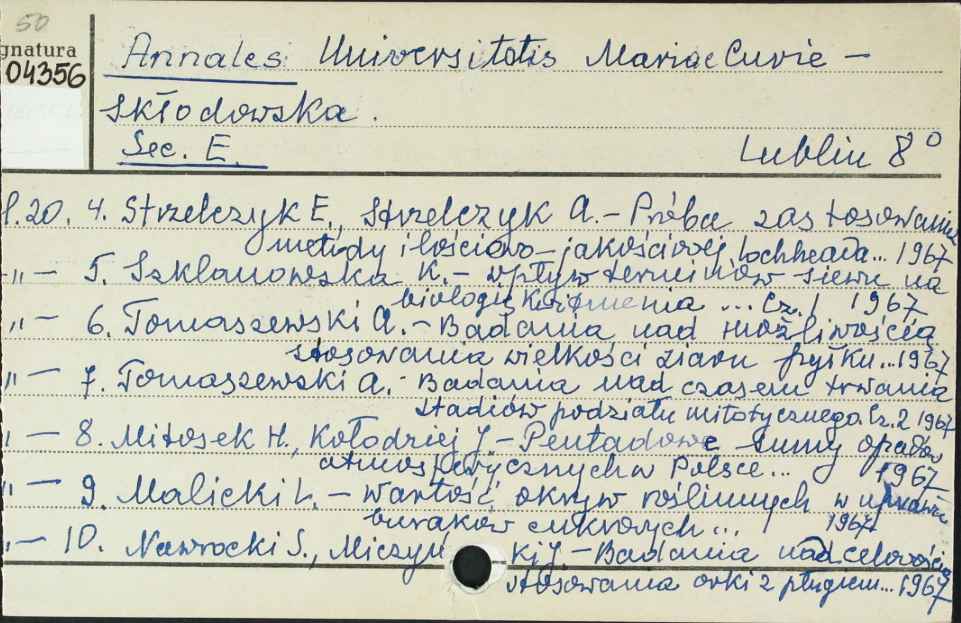 50
gnatura
04356
Annales Universitatis Mariae Curie -
Skłodowska.
Sec. E.
Lublin 8°
t.20. 4. Strzelczyk E., Strzelczyk A. - Próba zastosowania
metody ilościowo - jakościowej Lochheada... 1967
-„- 5. Szklanowska K. - Wpływ terminów siewu na
biologię kwitnienia ... Cz. 1 1967
„- 6. Tomaszewski A. - Badania nad możliwością
stosowania wielkości ziarn pyłku... 1967
„- 7. Tomaszewski A. - Badania nad czasem trwania
stadiów podziału mitotycznego. Cz. 2 1967
„- 8. Mitosek H., Kołodziej J. - Pentadowe sumy opadów
atmosferycznych w Polsce... 1967
„- 9. Malicki L. - Wartość okryw roślinnych w uprawie
buraków cukrowych ... 1967
„- 10. Nawrocki S., Miczyń ki J. - Badania nad celowością
stosowania orki z pługiem... 1967